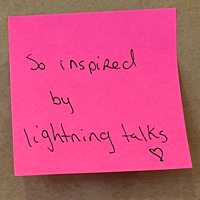 So inspired
by
lightning talks
♡